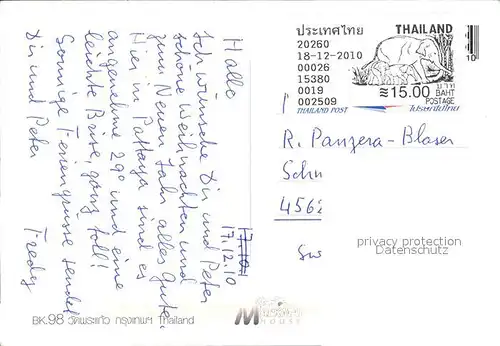 17.12.10
Hallo
Ich wünsche Dir und Peter
schöne Weihnachten und
zum Neuen Jahr alles Gute.
Hier in Pattaya sind es
angenehme 29° und eine
leichte Brise, ganz toll!
Sonnige Feriengrüsse sendet
Dir und Peter
Fredy
ประเทศไทย
20260
18-12-2010
00026
15380
0019
002509
THAILAND
≈15.00 บาท
BAHT
POSTAGE
THAILAND POST
ไปรษณีย์ไทย
10
R. Panzera-Blaser
Schn
4562
Sw
privacy protection
Datenschutz
BK.98 วัดพระแก้ว กรุงเทพฯ Thailand
HOUSE